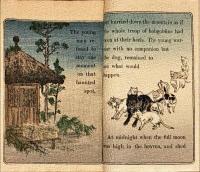 The young
men re-
fused to
stay one
moment
in that
haunted
spot,
hurried down the mountain as if
whole troop of hobgoblins had
been at their heels. The young war-
rior with no companion but
dog, remained to
what would
happen.
At midnight when the full moon
was high in the heavens, and shed